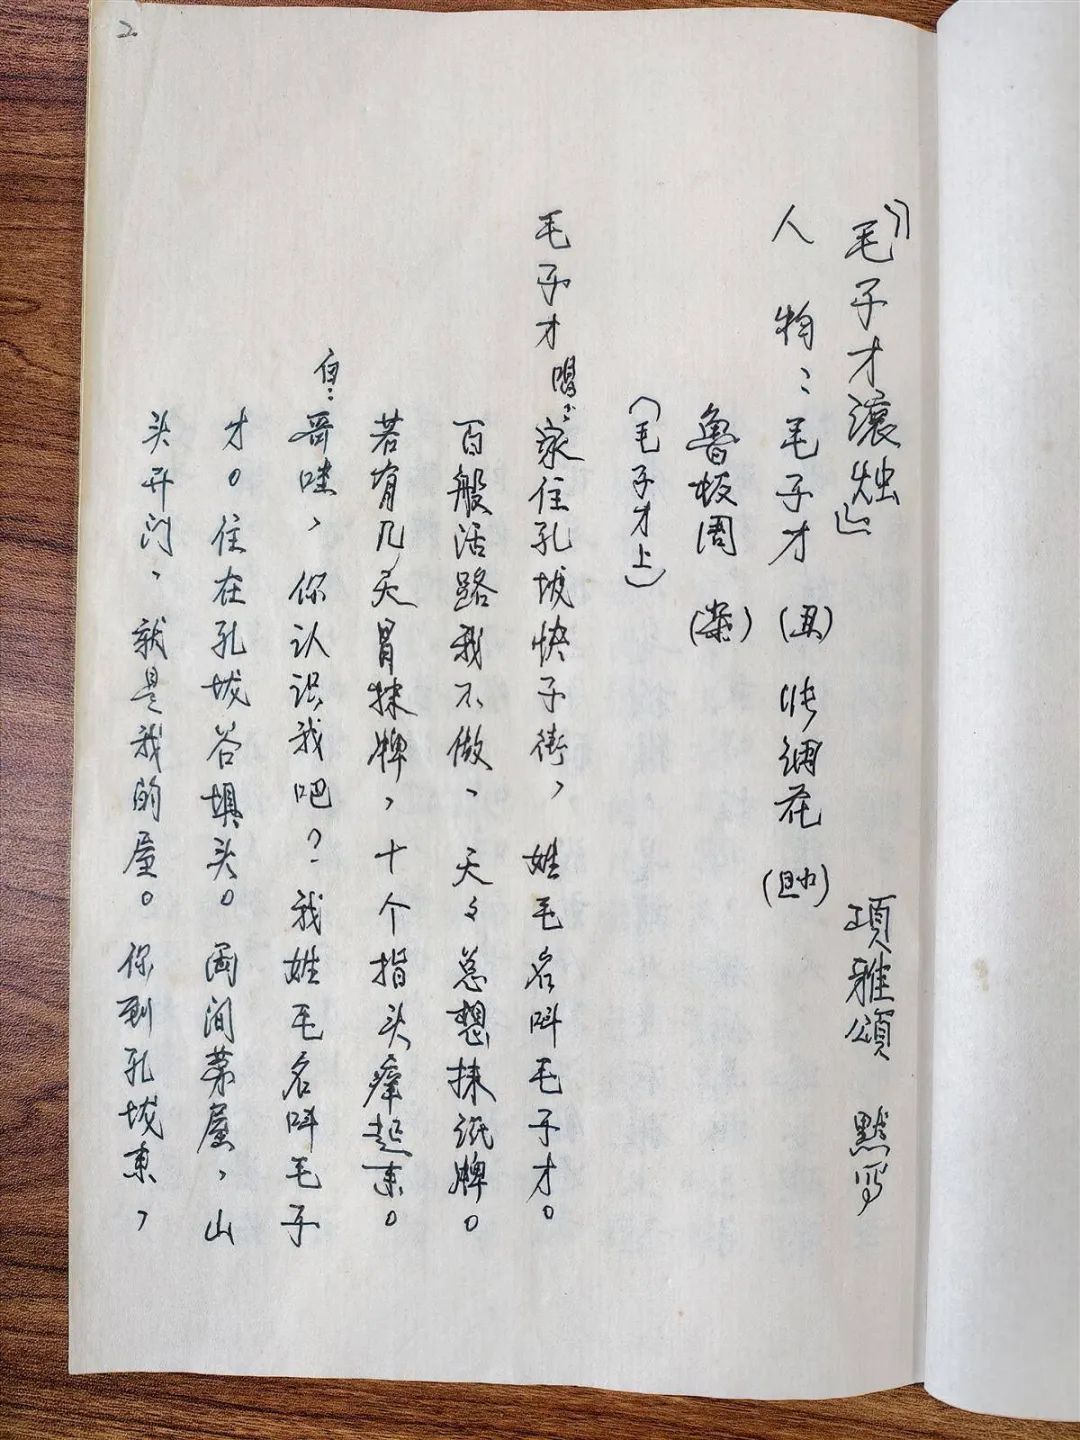 《毛子才滚烛》 項雅頌 默写
人 物：毛子才（丑） 张细花（旦）
鲁板周（杂）
（毛子才上）
毛子才唱：家住孔城快子街，姓毛名叫毛子才。
百般活路我不做、天々总想抹纸牌。
若有几天冒抹牌，十个指头痒起来。
白：哥哇，你认识我吧？我姓毛名叫毛子
才。住在孔城谷坝头。两间茅屋，山
头开门、就是我的屋。你到孔城来，
2